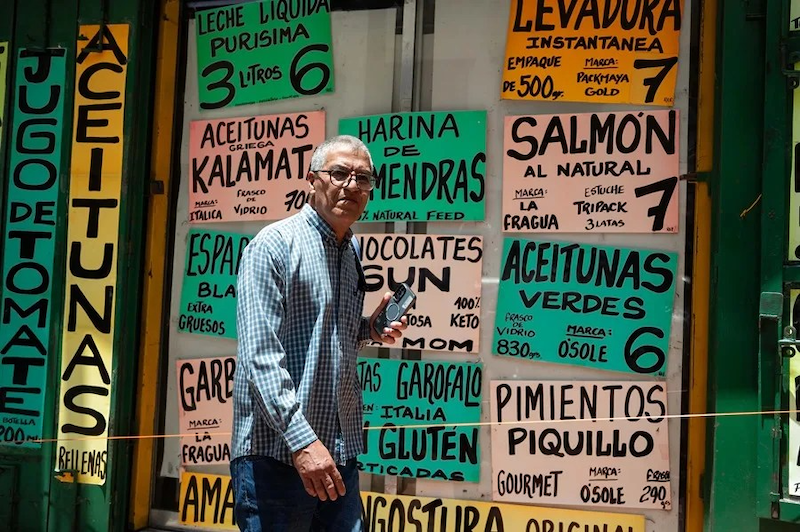 JUGO DE TOMATE
BOTELLA
ACEITUNAS
MARCA:
RELLENAS
LECHE LIQUIDA
PURISIMA
3 LITROS 6
LEVADURA
INSTANTANEA
EMPAQUE
DE 500gr.
MARCA:
PACKMAYA
GOLD
7
ACEITUNAS
GRIEGA
KALAMAT
MARCA:
ITALICA
FRASCO
DE
VIDRIO
HARINA
DE
MENDRAS
% NATURAL FEED
SALMÓN
AL NATURAL
MARCA:
LA
FRAGUA
ESTUCHE
TRIPACK
3 LATAS
7
ESPA
BLA
EXTRA
GRUESOS
HOCOLATES
SUN
100%
TOSA
KETO
MOM
ACEITUNAS
VERDES
FRASCO
DE
VIDRIO
830grs.
MARCA:
O'SOLE
6
GARB
MARCA:
LA
FRAGUA
TAS GAROFALO
EN ITALIA
GLUTÉN
RTICADAS
PIMIENTOS
PIQUILLO
GOURMET
MARCA:
O'SOLE
FRASC
290
AMA
NGOSTURA ORIGINAL